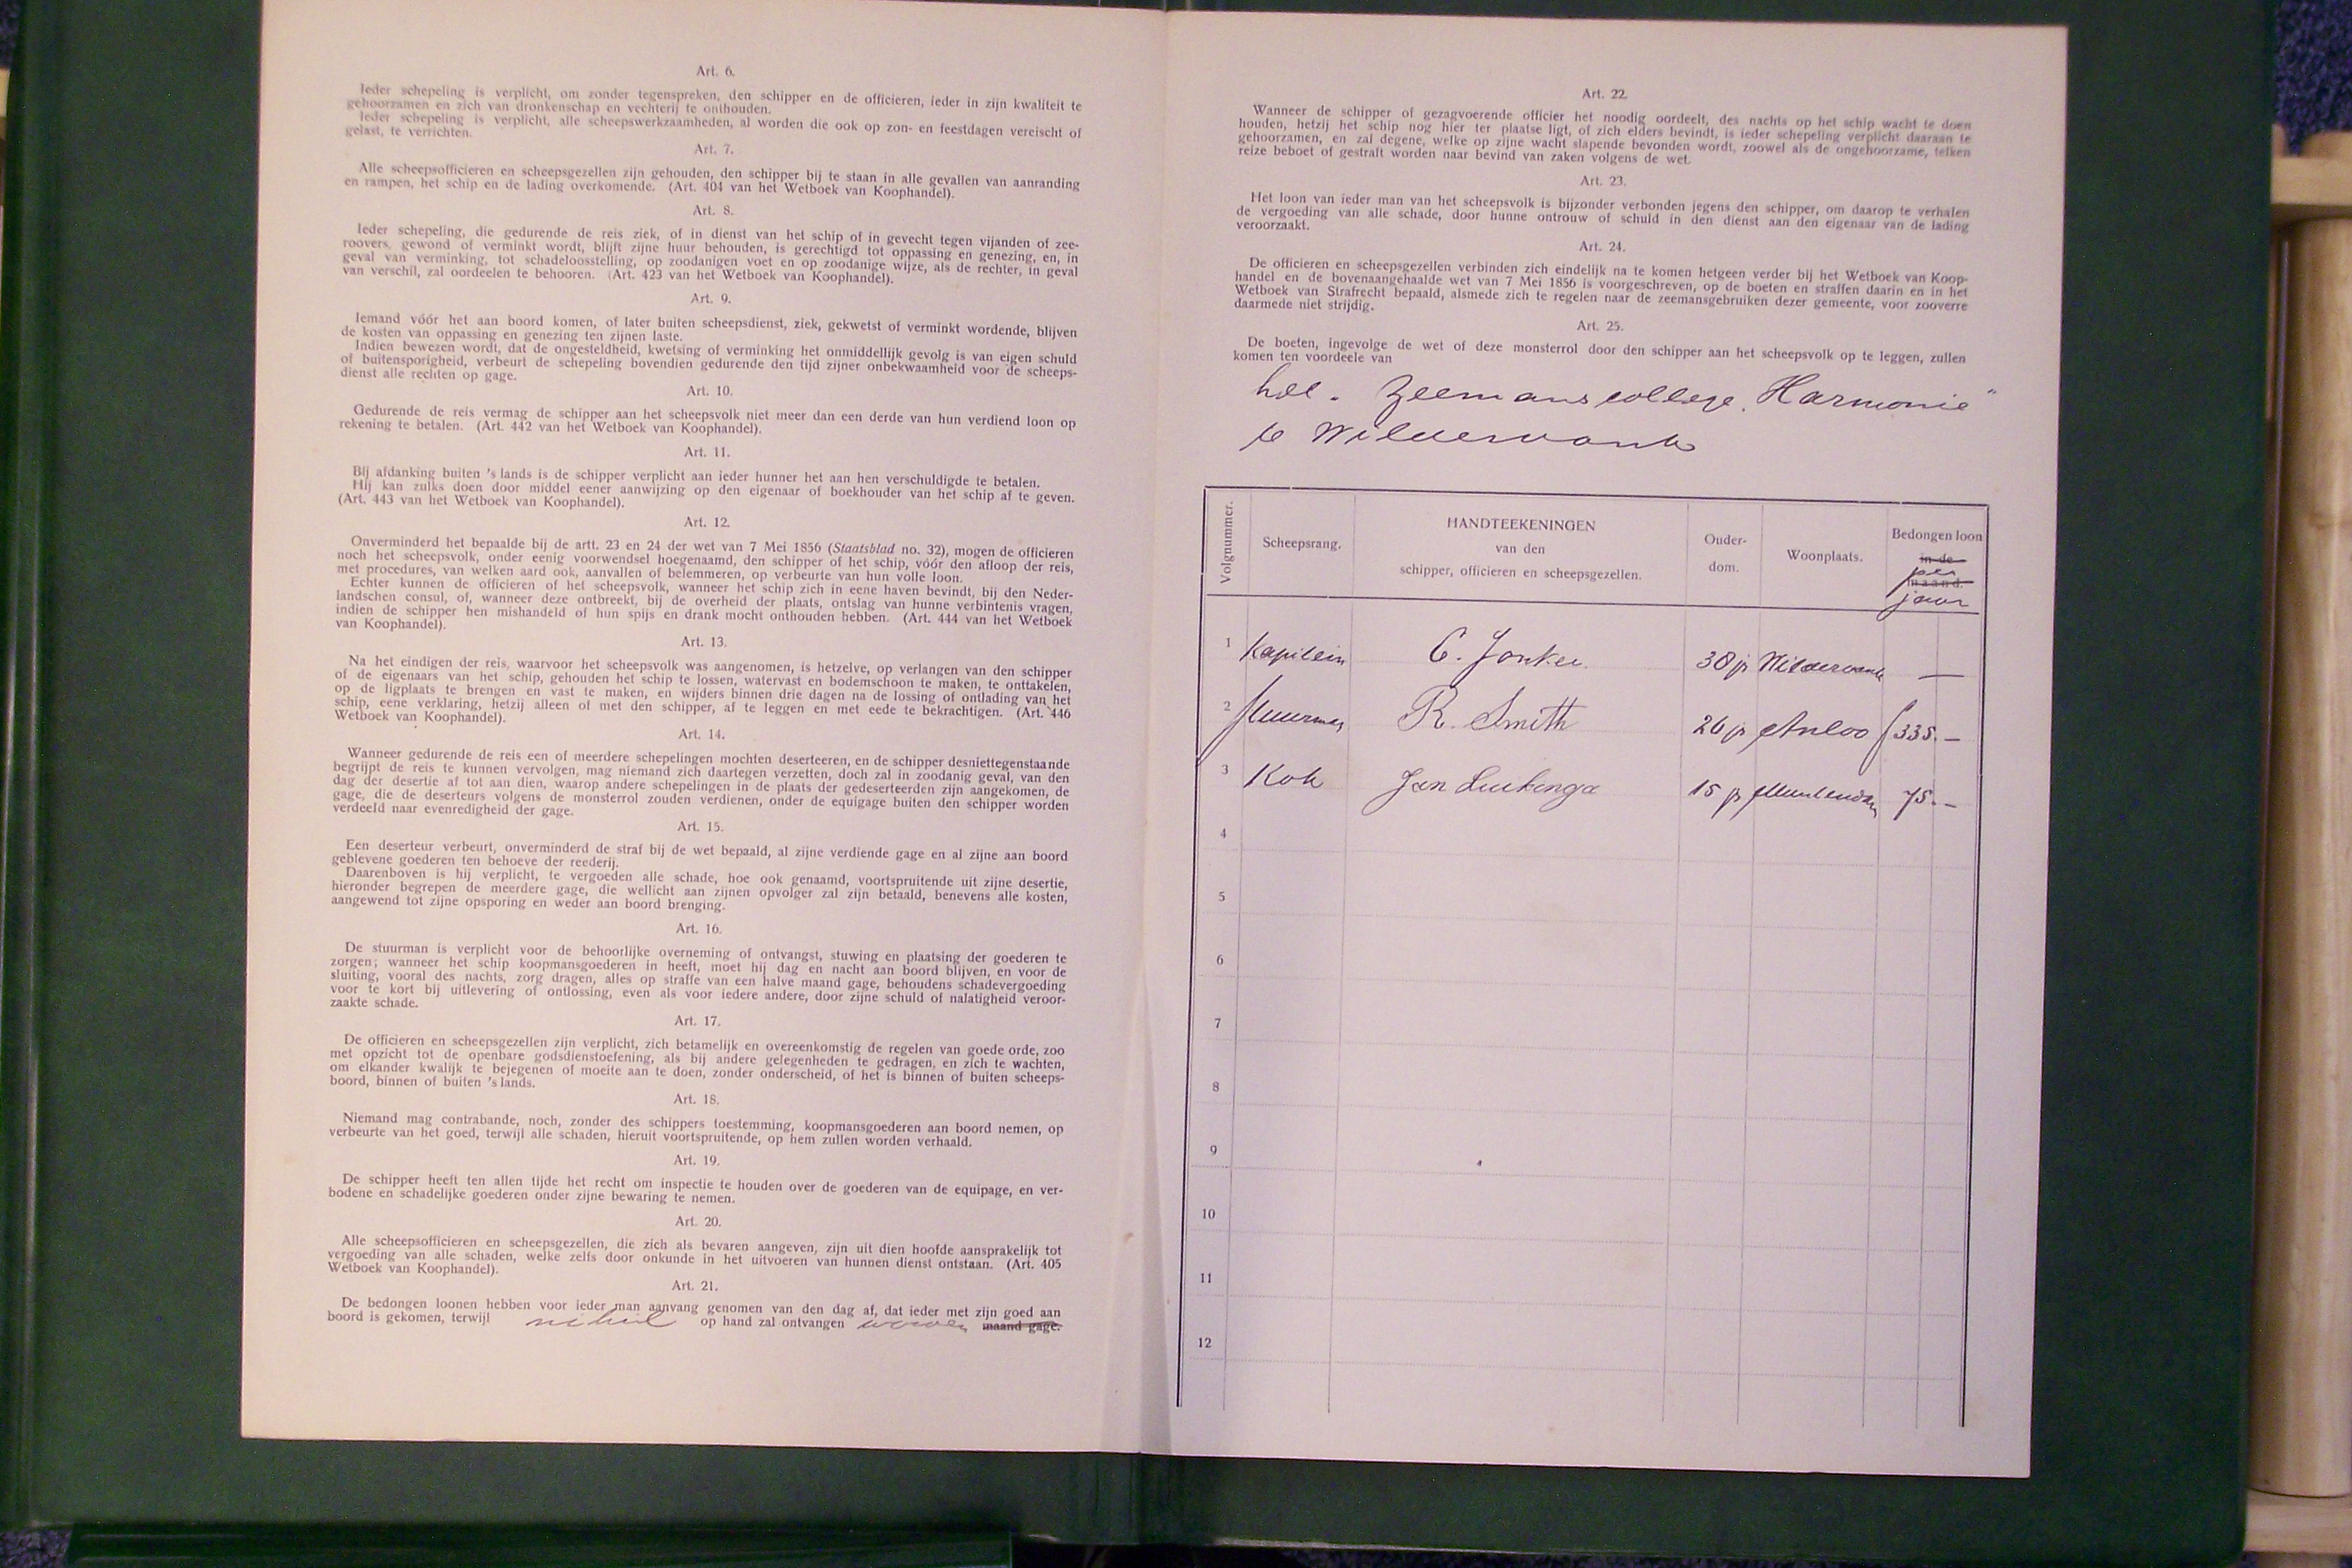 Art. 6.
Ieder schepeling is verplicht, om zonder tegenspreken, den schipper en de officieren, ieder in zijn kwaliteit te
gehoorzamen en zich van dronkenschap en vechterij te onthouden.
Ieder schepeling is verplicht, alle scheepswerkzaamheden, al worden die ook op zon- en feestdagen vereischt of
gelast, te verrichten.
Art. 7.
Alle scheepsofficieren en scheepsgezellen zijn gehouden, den schipper bij te staan in alle gevallen van aanranding
en rampen, het schip en de lading overkomende. (Art. 404 van het Wetboek van Koophandel).
Art. 8.
Ieder schepeling, die gedurende de reis ziek, of in dienst van het schip of in gevecht tegen vijanden of zee-
roovers, gewond of verminkt wordt, blijft zijne huur behouden, is gerechtigd tot oppassing en genezing, en, in
geval van verminking, tot schadeloosstelling, op zoodanigen voet en op zoodanige wijze, als de rechter, in geval
van verschil, zal oordeelen te behooren. (Art. 423 van het Wetboek van Koophandel).
Art. 9.
Iemand vóór het aan boord komen, of later buiten scheepsdienst, ziek, gekwetst of verminkt wordende, blijven
de kosten van oppassing en genezing ten zijnen laste.
Indien bewezen wordt, dat de ongesteldheid, kwetsing of verminking het onmiddellijk gevolg is van eigen schuld
of buitensporigheid, verbeurt de schepeling bovendien gedurende den tijd zijner onbekwaamheid voor de scheeps-
dienst alle rechten op gage.
Art. 10.
Gedurende de reis vermag de schipper aan het scheepsvolk niet meer dan een derde van hun verdiend loon op
rekening te betalen. (Art. 442 van het Wetboek van Koophandel).
Art. 11.
Bij afdanking buiten 's lands is de schipper verplicht aan ieder hunner het aan hen verschuldigde te betalen.
Hij kan zulks doen door middel eener aanwijzing op den eigenaar of boekhouder van het schip af te geven.
(Art. 443 van het Wetboek van Koophandel).
Art. 12.
Onverminderd het bepaalde bij de artt. 23 en 24 der wet van 7 Mei 1856 (Staatsblad no. 32), mogen de officieren
noch het scheepsvolk, onder eenig voorwendsel hoegenaamd, den schipper of het schip, vóór den afloop der reis,
met procedures, van welken aard ook, aanvallen of belemmeren, op verbeurte van hun volle loon.
Echter kunnen de officieren of het scheepsvolk, wanneer het schip zich in eene haven bevindt, bij den Neder-
landschen consul, of, wanneer deze ontbreekt, bij de overheid der plaats, ontslag van hunne verbintenis vragen,
indien de schipper hen mishandeld of hun spijs en drank mocht onthouden hebben. (Art. 444 van het Wetboek
van Koophandel).
Art. 13.
Na het eindigen der reis, waarvoor het scheepsvolk was aangenomen, is hetzelve, op verlangen van den schipper
of de eigenaars van het schip, gehouden het schip te lossen, watervast en bodemschoon te maken, te onttakelen,
op de ligplaats te brengen en vast te maken, en wijders binnen drie dagen na de lossing of ontlading van het
schip, eene verklaring, hetzij alleen of met den schipper, af te leggen en met eede te bekrachtigen. (Art. 446
Wetboek van Koophandel).
Art. 14.
Wanneer gedurende de reis een of meerdere schepelingen mochten deserteeren, en de schipper desniettegenstaande
begrijpt de reis te kunnen vervolgen, mag niemand zich daartegen verzetten, doch zal in zoodanig geval, van den
dag der desertie af tot aan dien, waarop andere schepelingen in de plaats der gedeserteerden zijn aangekomen, de
gage, die de deserteurs volgens de monsterrol zouden verdienen, onder de equigage buiten den schipper worden
verdeeld naar evenredigheid der gage.
Art. 15.
Een deserteur verbeurt, onverminderd de straf bij de wet bepaald, al zijne verdiende gage en al zijne aan boord
geblevene goederen ten behoeve der reederij.
Daarenboven is hij verplicht, te vergoeden alle schade, hoe ook genaamd, voortspruitende uit zijne desertie,
hieronder begrepen de meerdere gage, die wellicht aan zijnen opvolger zal zijn betaald, benevens alle kosten,
aangewend tot zijne opsporing en weder aan boord brenging.
Art. 16.
De stuurman is verplicht voor de behoorlijke overneming of ontvangst, stuwing en plaatsing der goederen te
zorgen; wanneer het schip koopmansgoederen in heeft, moet hij dag en nacht aan boord blijven, en voor de
sluiting, vooral des nachts, zorg dragen, alles op straffe van een halve maand gage, behoudens schadevergoeding
voor te kort bij uitlevering of ontlossing, even als voor iedere andere, door zijne schuld of nalatigheid veroor-
zaakte schade.
Art. 17.
De officieren en scheepsgezellen zijn verplicht, zich betamelijk en overeenkomstig de regelen van goede orde, zoo
met opzicht tot de openbare godsdienstoefening, als bij andere gelegenheden te gedragen, en zich te wachten,
om elkander kwalijk te bejegenen of moeite aan te doen, zonder onderscheid, of het is binnen of buiten scheeps-
boord, binnen of buiten 's lands.
Art. 18.
Niemand mag contrabande, noch, zonder des schippers toestemming, koopmansgoederen aan boord nemen, op
verbeurte van het goed, terwijl alle schaden, hieruit voortspruitende, op hem zullen worden verhaald.
Art. 19.
De schipper heeft ten allen tijde het recht om inspectie te houden over de goederen van de equipage, en ver-
bodene en schadelijke goederen onder zijne bewaring te nemen.
Art. 20.
Alle scheepsofficieren en scheepsgezellen, die zich als bevaren aangeven, zijn uit dien hoofde aansprakelijk tot
vergoeding van alle schaden, welke zelfs door onkunde in het uitvoeren van hunnen dienst ontstaan. (Art. 405
Wetboek van Koophandel).
Art. 21.
De bedongen loonen hebben voor ieder man aanvang genomen van den dag af, dat ieder met zijn goed aan
boord is gekomen, terwijl nihil op hand zal ontvangen worden maand gage.
Art. 22.
Wanneer de schipper of gezagvoerende officier het noodig oordeelt, des nachts op het schip wacht te doen
houden, hetzij het schip nog hier ter plaatse ligt, of zich elders bevindt, is ieder schepeling verplicht daaraan te
gehoorzamen, en zal degene, welke op zijne wacht slapende bevonden wordt, zoowel als de ongehoorzame, telken
reize beboet of gestraft worden naar bevind van zaken volgens de wet.
Art. 23.
Het loon van ieder man van het scheepsvolk is bijzonder verbonden jegens den schipper, om daarop te verhalen
de vergoeding van alle schade, door hunne ontrouw of schuld in den dienst aan den eigenaar van de lading
veroorzaakt.
Art. 24.
De officieren en scheepsgezellen verbinden zich eindelijk na te komen hetgeen verder bij het Wetboek van Koop-
handel en de bovenaangehaalde wet van 7 Mei 1856 is voorgeschreven, op de boeten en straffen daarin en in het
Wetboek van Strafrecht bepaald, alsmede zich te regelen naar de zeemansgebruiken dezer gemeente, voor zooverre
daarmede niet strijdig.
Art. 25.
De boeten, ingevolge de wet of deze monsterrol door den schipper aan het scheepsvolk op te leggen, zullen
komen ten voordeele van
het Zeemanscollege „Harmonie"
te Wildervank
Volgnummer. Scheepsrang. HANDTEEKENINGEN van den schipper, officieren en scheepsgezellen. Ouder-dom. Woonplaats. Bedongen loon in de maand. per jaar
1 Kapitein C. Jonker 38 jr Wildervank —
2 Stuurman R. Smith 26 jr Anloo f 335.—
3 Kok Jan Luikinga 15 jr Muntendam 75.—
4
5
6
7
8
9
10
11
12